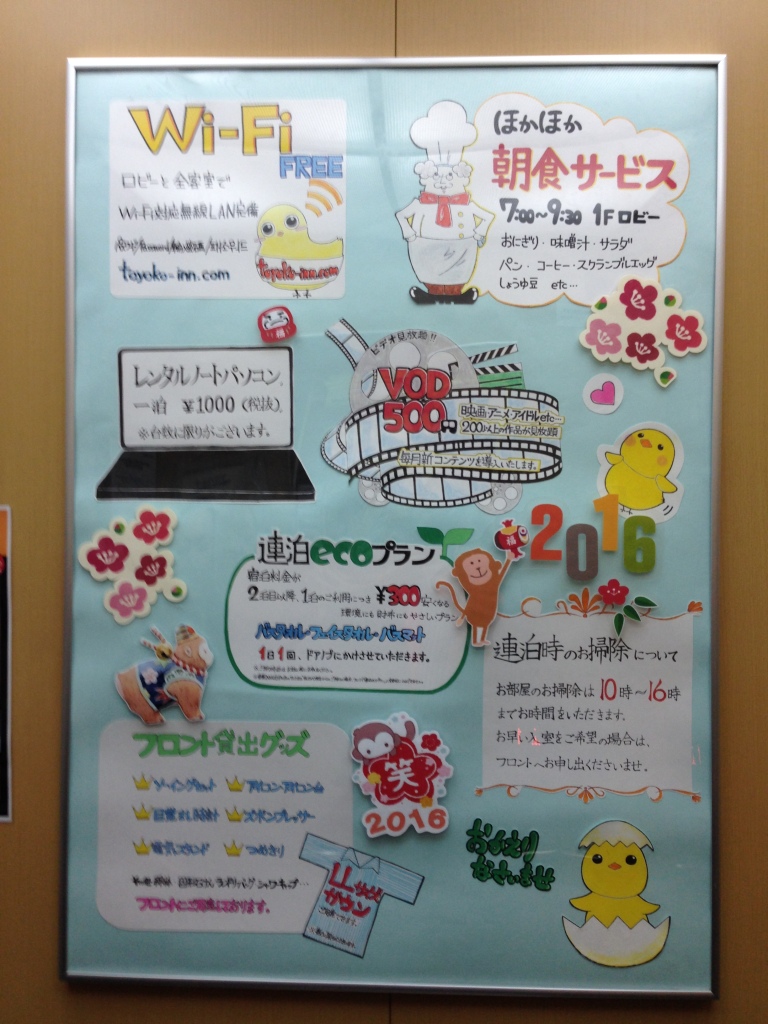 Wi-Fi
FREE
ロビーと全客室で
Wi-Fi対応無線LAN完備
toyoko-inn.com
toyoko-inn.com
ほかほか
朝食サービス
7:00~9:30 1Fロビー
おにぎり・味噌汁・サラダ
パン・コーヒー・スクランブルエッグ
しょうゆ豆 etc…
福
レンタルノートパソコン
一泊 ¥1000(税抜)
※台数に限りがございます。
ビデオ見放題!!
VOD
500
映画アニメ・アイドルetc…
200以上の作品が見放題
毎月新コンテンツを導入いたします。
連泊ecoプラン
宿泊料金が
2泊目以降、1泊のご利用につき ¥300安くなる
環境にもお財布にもやさしいプラン
バスタオル・フェイスタオル・バスマット
1日1回、ドアノブにかけさせていただきます。
福
2016
連泊時のお掃除について
お部屋のお掃除は10時~16時
までお時間をいただきます。
お早い入室をご希望の場合は、
フロントへお申し出くださいませ。
フロント貸出グッズ
ソーイングセット アイロン・アイロン台
目覚まし時計 ズボンプレッサー
電気スタンド つめきり
フロントにご用意しております。
LLサイズ
ガウン
笑
2016
おかえり
なさいませ